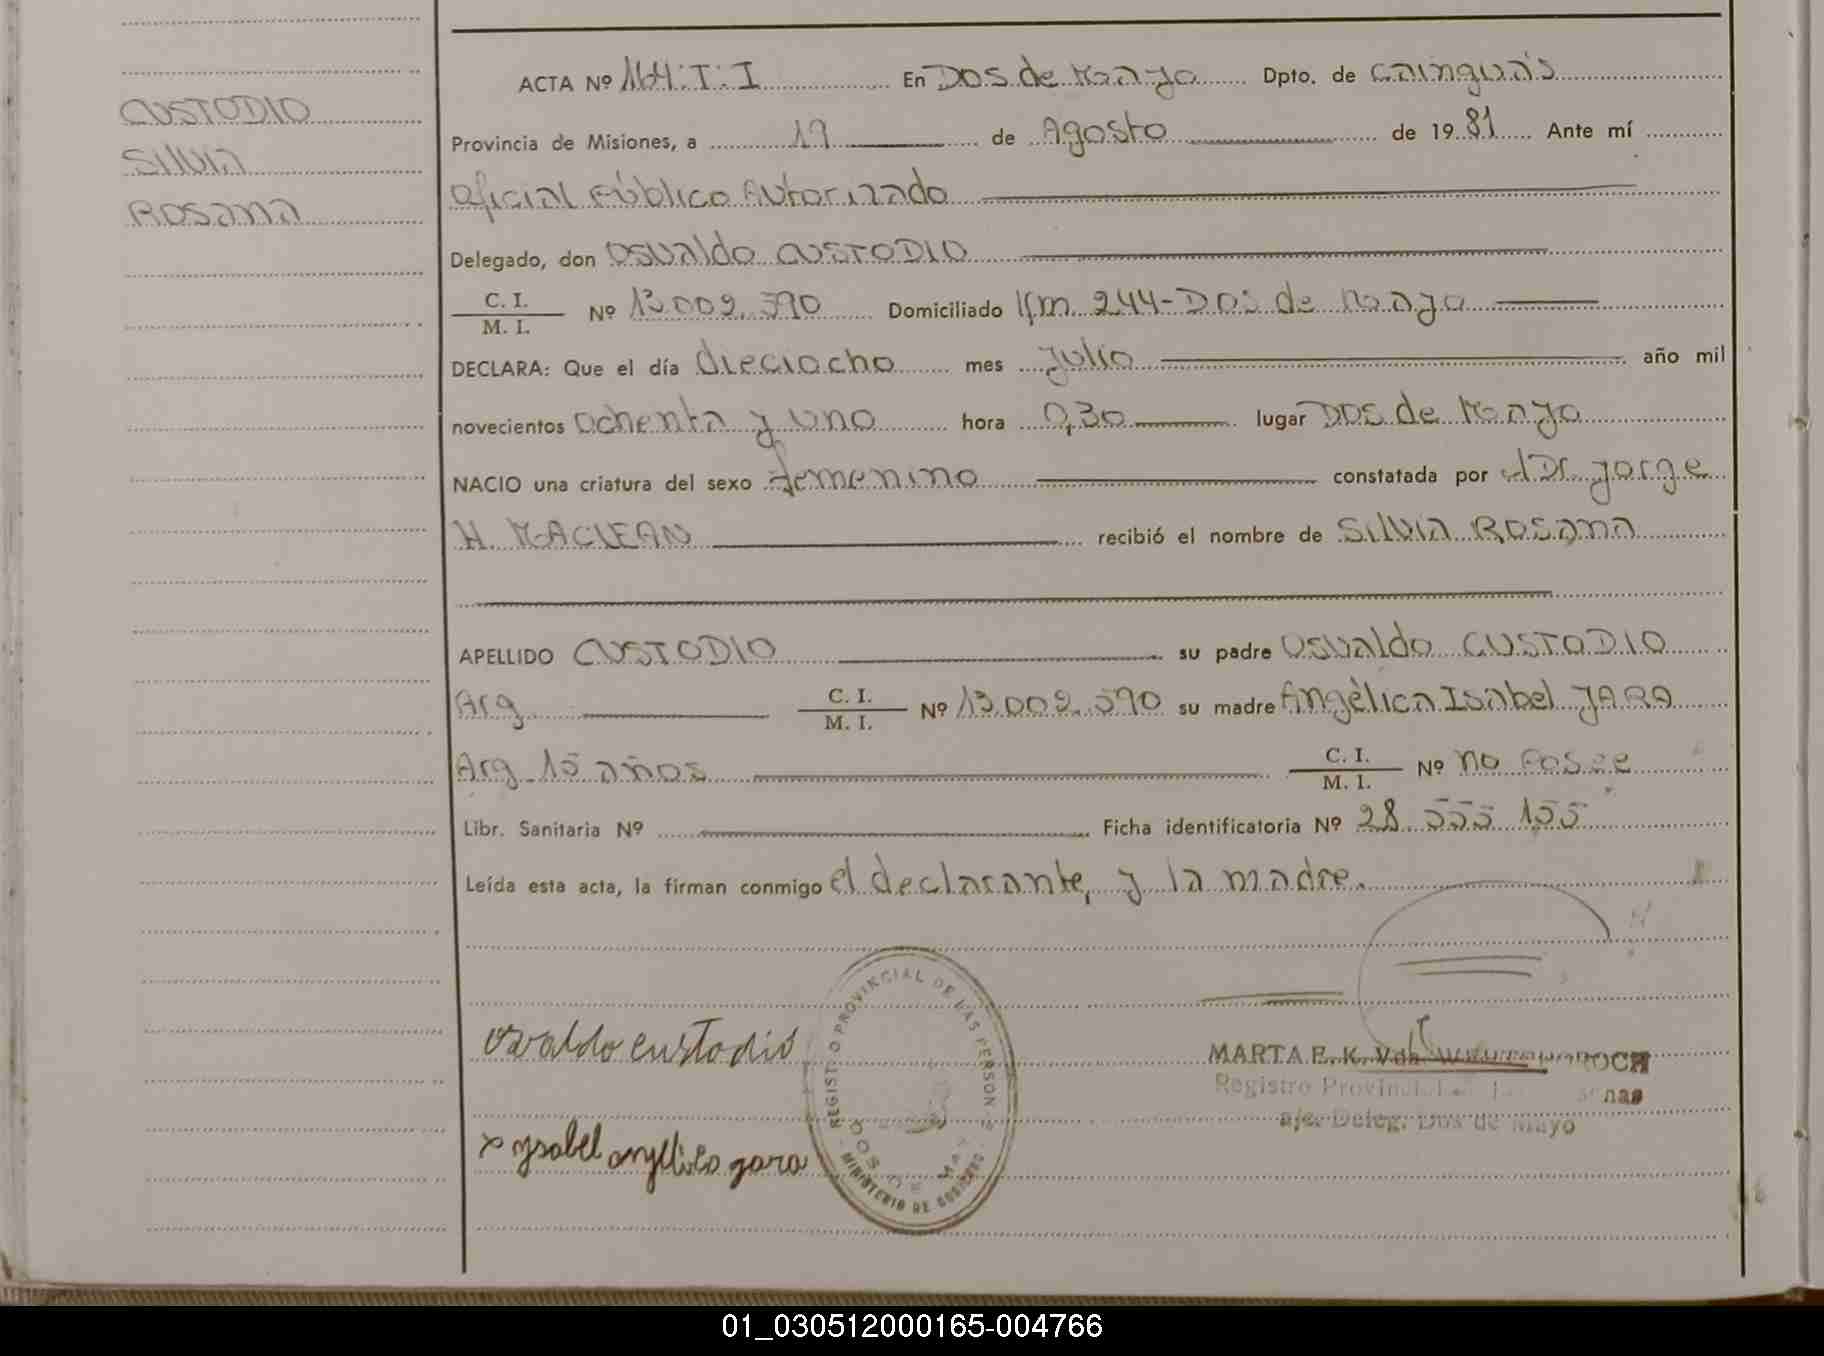 CUSTODIO
SILVIA
ROSANA
ACTA Nº 164:T:I En Dos de Mayo Dpto. de Cainguás
Provincia de Misiones, a 19 de Agosto de 1981 Ante mí
Oficial Público Autorizado
Delegado, don Osvaldo CUSTODIO
C. I. / M. I. Nº 13.009.590 Domiciliado Km. 244-Dos de Mayo
DECLARA: Que el día dieciocho mes Julio año mil
novecientos ochenta y uno hora 0,30 lugar Dos de Mayo
NACIO una criatura del sexo femenino constatada por Dr. Jorge
H. MACLEAN recibió el nombre de Silvia Rosana
APELLIDO CUSTODIO su padre Osvaldo CUSTODIO
Arg. C. I. / M. I. Nº 13.009.590 su madre Angélica Isabel JARA
Arg. 15 años C. I. / M. I. Nº no Posee
Libr. Sanitaria Nº Ficha identificatoria Nº 28.555.155
Leída esta acta, la firman conmigo el declarante, y la madre.
osvaldo custodio
x ysabel angelica jara
REGISTRO PROVINCIAL DE LAS PERSONAS
DOS DE MAYO
MINISTERIO DE GOBIERNO
MARTA E. K. Vda.
Registro Provincial
Deleg. Dos de Mayo
01_030512000165-004766